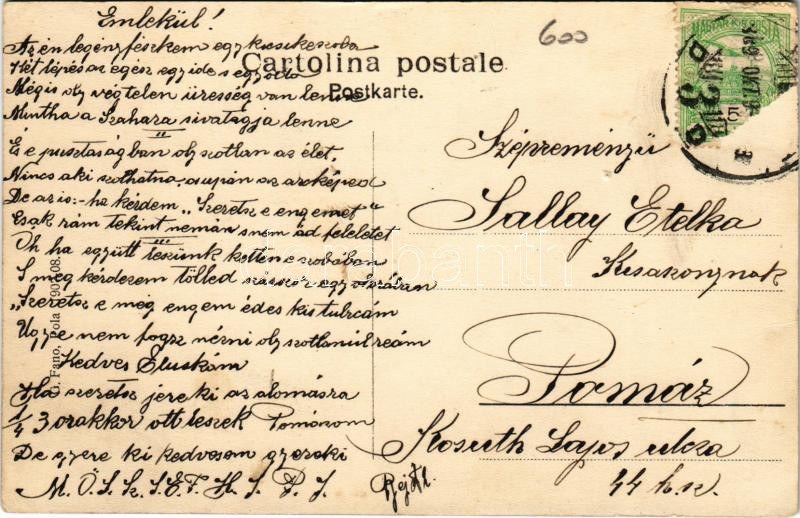 Emlékül!
Az én legény fészkem egy kicsike szoba
Hét lépés az egész egy ide s egy oda
Mégis oly végtelen üresség van benne
Mintha a Szahara sivatagja lenne
II
És e pusztaságban oly szótlan az élet,
Nincs aki szólhatna, csupán az arcképed
De az is - ha kérdem „Szeretsz e engemet"
Csak rám tekint némán s nem ád feleletet
III
Óh ha együtt leszünk ketten e szobában
S meg kérdezem tölled százszor egy órában
„Szeretsz e még engem édes kis tubicám
Ugye nem fogsz nézni oly szótlanúl reám
Kedves Eluskám
Ha szeretsz jere ki az alomásra
1/4 3 orakkor ott leszek Pomázon
De gyere ki kedvesem gyereki
M. Ö. S. k. S. E. F. H. S. P. J.
600
Cartolina postale
Postkarte.
MAGYAR KIR. POSTA
5
Szépreményű
Sallay Etelka
Kisasszonynak
Pomáz
Kosuth Lajos utcza
44 h. sz.
G. Fano, Pola 1907-08.